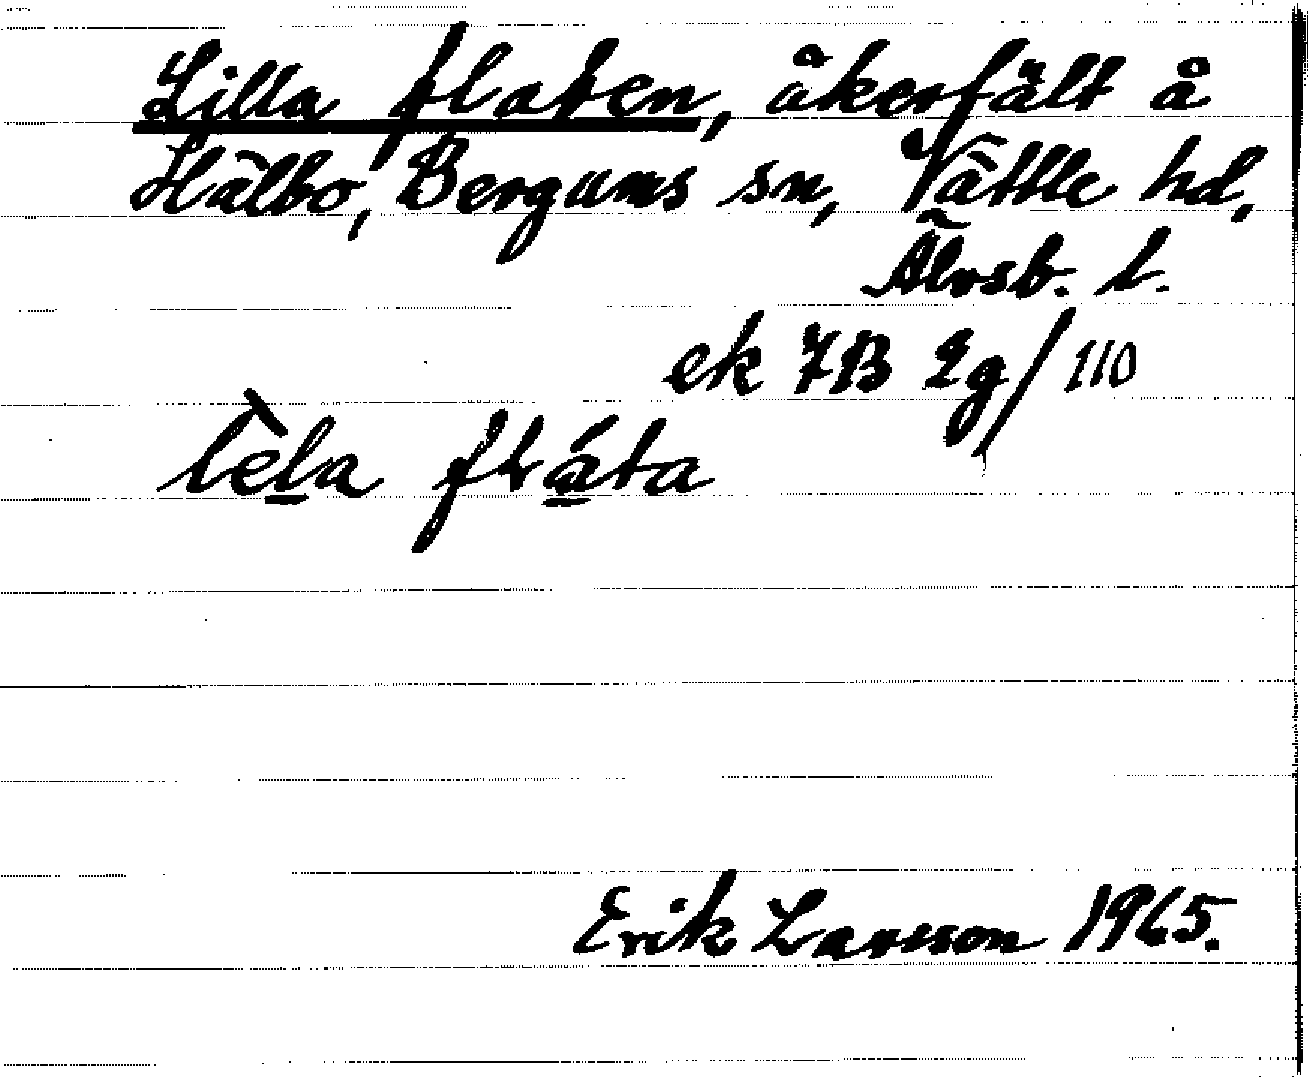 Lilla flaten, åkerfält å
Hälbo, Bergums sn, Vättle hd,
Älvsb. l.
ek 7B 2g/110
lèla fláta
Erik Larsson 1965.